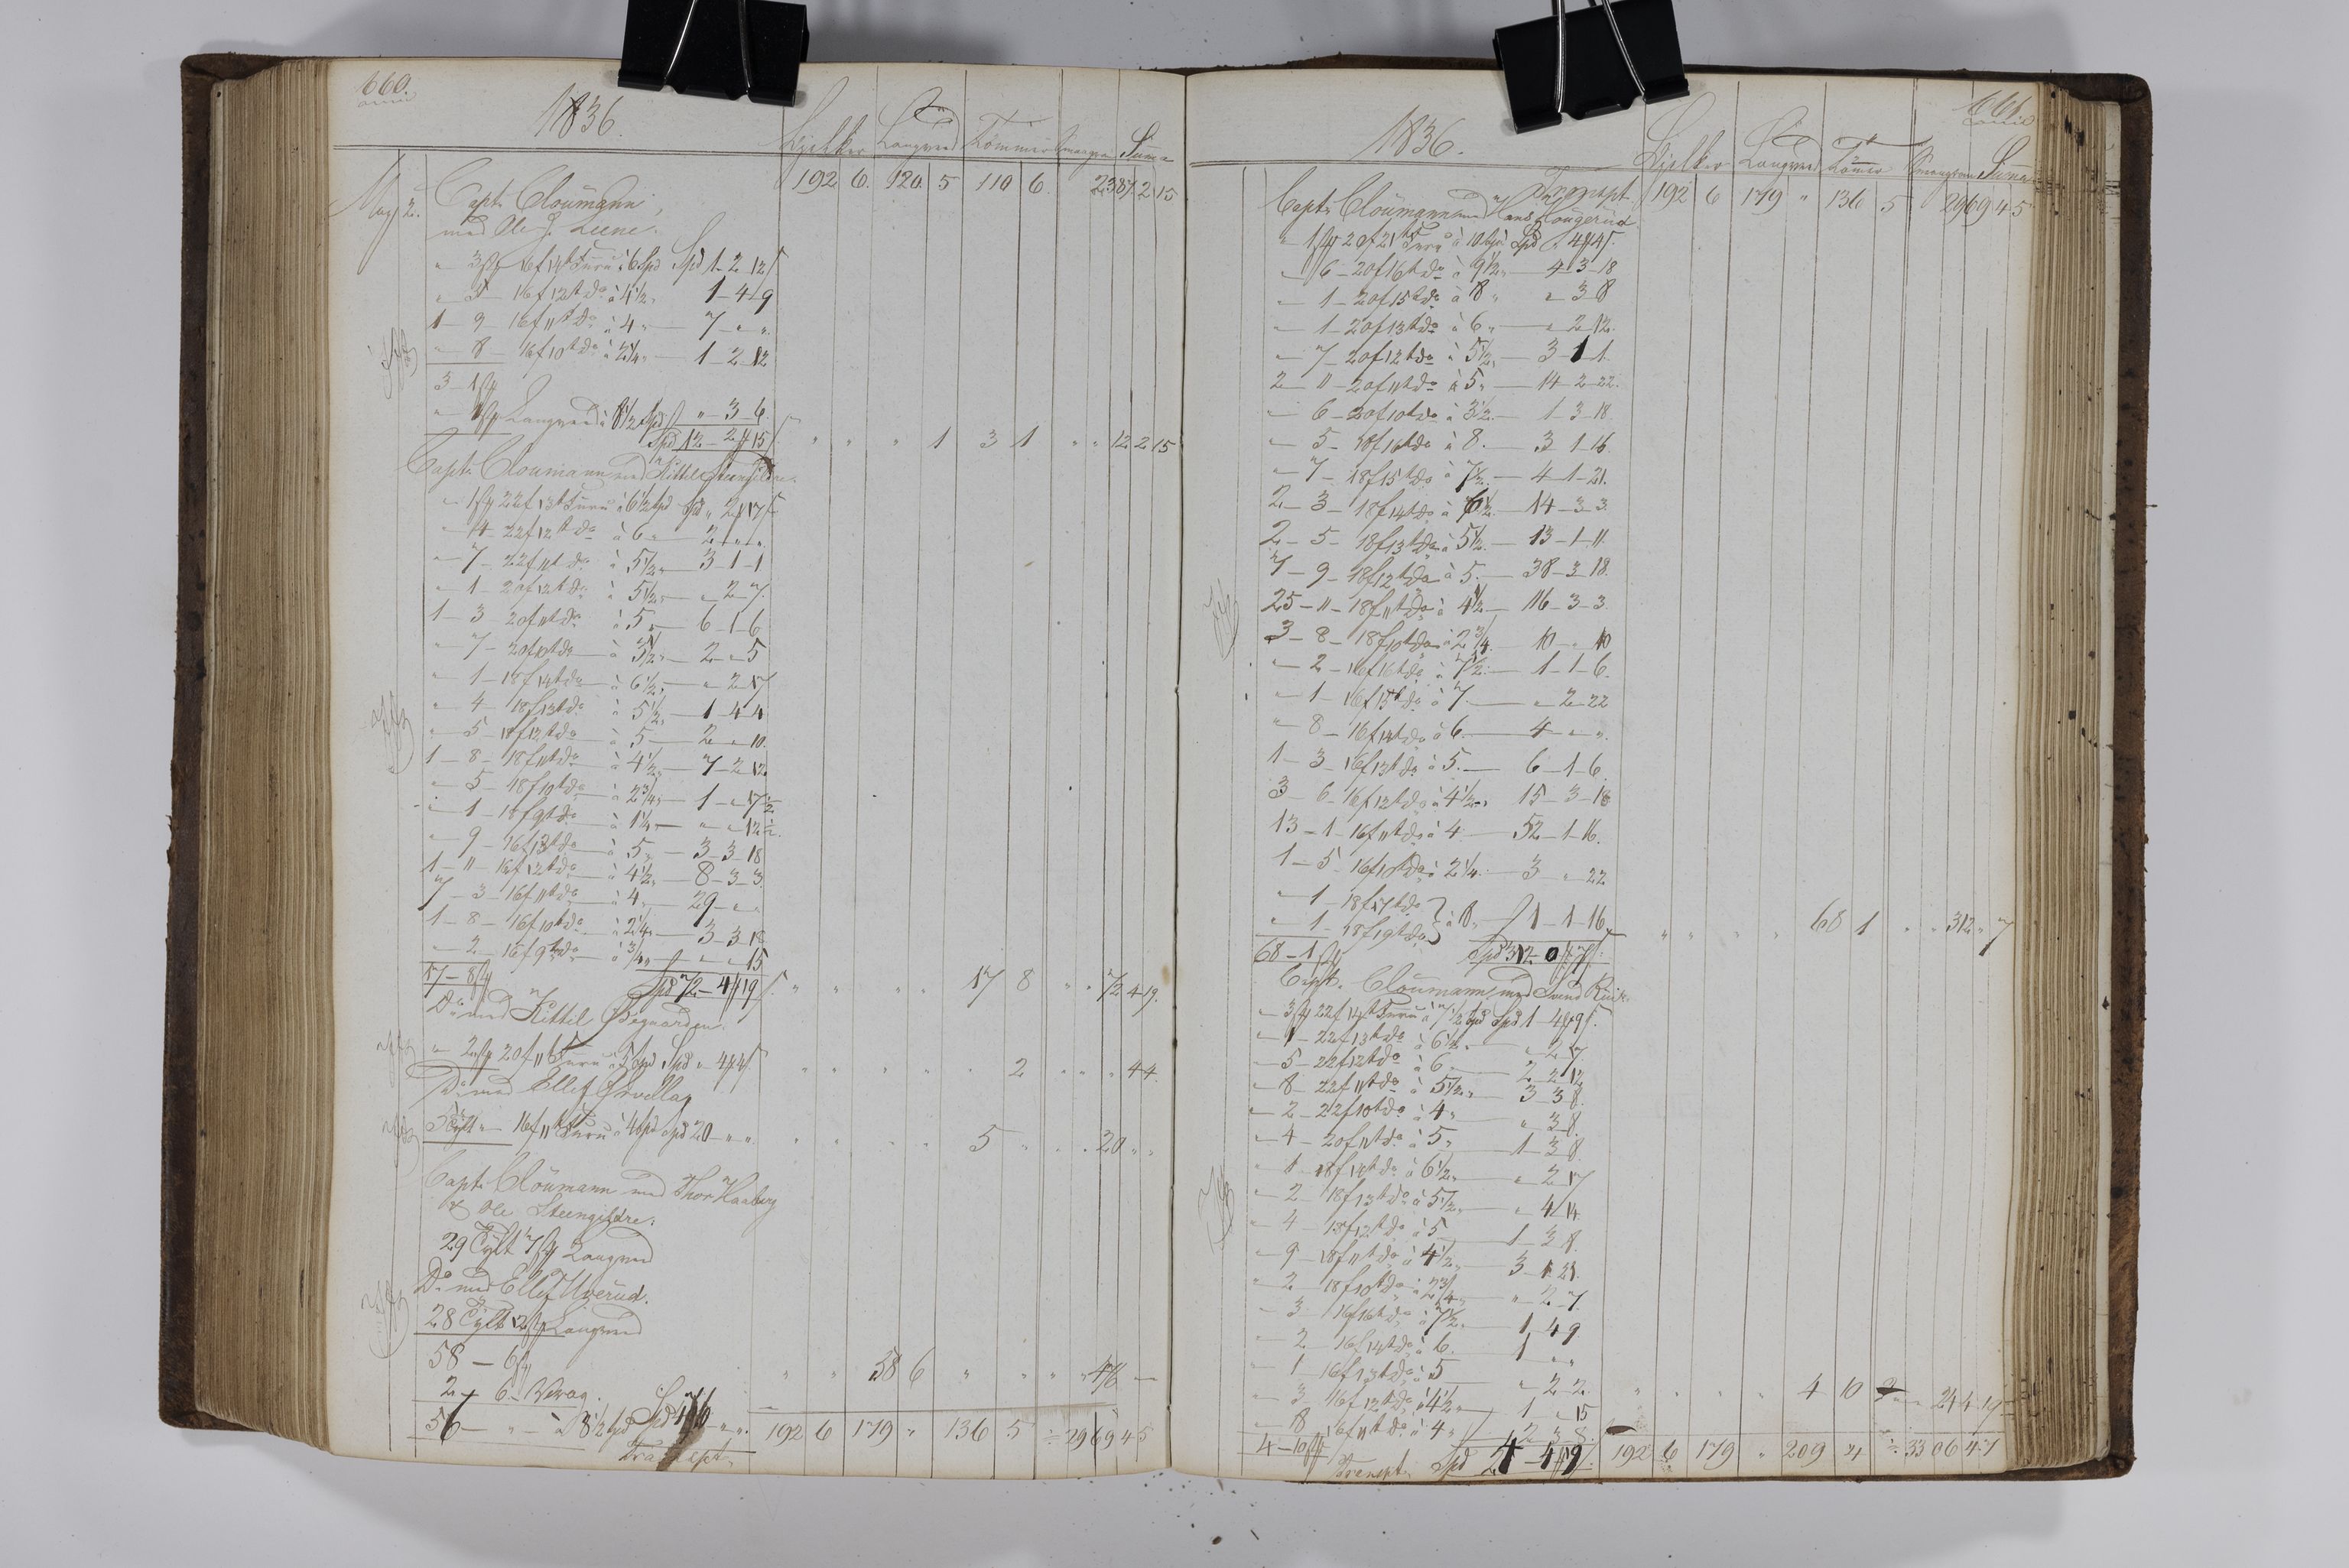 660.
1836.
Bjelker Langved Tömmer Smaaved Suma
192 6. 120. 5 110 6. 2387 2 15
May 2. Capt. Cloumann,
med Ole J. Lune.
" 3 st 16 f 14 t Furu à 6 Spd Spd 1-2-12 s
" 5 - 16 f 12 t do à 4 1/2 " 1-4-9
1 - 9 - 16 f 11 t do à 4 " 7 - " - "
" - 8 - 16 f 10 t do à 2 1/4 " 1-2-12
3 - 1 st
" 1 st Langved à 8 1/2 Spd " - 3 - 6
Spd 12 - 2 - 15 " " " 1 3 1 " " 12 2 15
Capt. Cloumann med Kittil Steengildre.
" 1 st 22 f 13 t Furu à 6 1/2 Spd Spd " 2 17
" 4 - 22 f 12 t do à 6 " 2 " "
" 7 - 22 f 11 t do à 5 1/2 " 3-1-1
" 1 - 20 f 12 t do à 5 1/2 " " 2-7
1 - 3 - 20 f 11 t do à 5 " 6-1-6
" 7 - 20 f 10 t do à 3 1/2 " 2 - " - 5
" 1 - 18 f 14 t do à 6 1/2 " " 2-17
" 4 - 18 f 13 t do à 5 1/2 " 1-4-4
" 5 - 18 f 12 t do à 5 2 - " - 10
1 - 8 - 18 f 11 t do à 4 1/2 " 7-2-12
" 5 - 18 f 10 t do à 2 3/4 " 1 - " 17 1/2
" 1 - 18 f 9 t do à 1 1/4 " " - " 12 1/2
" 9 - 16 f 13 t do à 5 " 3-3-18
1 - 11 - 16 f 12 t do à 4 1/2 " 8-3-3
7 - 3 - 16 f 11 t do à 4 " 29 - " - "
1 - 8 - 16 f 10 t do à 2 1/4 " 3-3-18
" 2 - 16 f 9 t do à 3/4 " " - " 15
17 - 8 st Spd 72 - 4 - 19 " " " " 17 8 " " 72 4 19.
Do med Kittil
" 2 st 20 f 11 t Furu à 5 Spd Spd " 4 4 " " " " " 2 " " " 4 4.
Do med Ellef
5 Tylt " - 16 f 11 t Furu à 4 Spd Spd 20 - " " " " " " 5 " " " 20 " "
Capt. Cloumann med Thor Haaberg
& Ole Steengildre.
29 Tylt 7 st Langved
Do med Ellef Uverud.
28 Tylt 12 st Langved
58 - 6 st " " 58 6 " " " " 476 —
2 - 6 - Vrag.
56 - " - à 8 1/2 Spd Spd 476 " "
192 6 179 " 136 5 ÷ 2969 4 5
Transpt.
661.
1836.
Bjelker Langved Tömmer Smaaved Suma
Transpt. 192 6 179 " 136 5 2969 4 5
Capt. Cloumann med Hans Hougerud
" 1 st 20 f 21 t Furu à 10 Spd Spd " 4 4 s.
" 6 - 20 f 16 t do à 9 1/2 " 4-3-18
" 1 - 20 f 15 t do à 8 " " 3-8
" 1 - 20 f 13 t do à 6 " " 2-12
" 7 - 20 f 12 t do à 5 1/2 3-1-1
2 - 11 - 20 f 11 t do à 5 " 14-2-22
" 6 - 20 f 10 t do à 3 1/2 1-3-18
" 5 - 18 f 16 t do à 8. 3 1-16
" 7 - 18 f 15 t do à 7 1/2 4-1-21
2 - 3 - 18 f 14 t do à 6 1/2 14-3-3
2 - 5 - 18 f 13 t do à 5 1/2 13-1-11
7 - 9 - 18 f 12 t do à 5. 38-3-18
25 - 11 - 18 f 11 t do à 4 1/2 116-3-3
3 - 8 - 18 f 10 t do à 2 3/4 10 - " - 10
" 2 - 16 f 16 t do à 7 1/2 1-1-6
" 1 - 16 f 15 t do à 7 " 2-22
" 8 - 16 f 14 t do à 6. 4 - " "
1 - 3 - 16 f 13 t do à 5. 6-1-6
3 - 6 - 16 f 12 t do à 4 1/2 " 15-3-18
13 - 1 - 16 f 11 t do à 4 52-1-16
1 - 5 - 16 f 10 t do à 2 1/4 3 " 22
" 1 - 18 f 17 t do
" 1 - 18 f 19 t do } à 8 " 1-1-16 " " " " 68 1 " " 312 " 7
68 - 1 st Spd 312 - 0 - 7 s.
Capt. Cloumann med Svend
" 3 st 22 f 14 t Furu à 7 1/2 Spd Spd 1-4-9 s.
" 1 - 22 f 13 t do à 6 1/2 " " 2-17
" 5 - 22 f 12 t do à 6 2 2 12
" 8 - 22 f 11 t do à 5 1/2 " 3 3 8
" 2 - 22 f 10 t do à 4 " " 3-8
" 4 - 20 f 11 t do à 5 " 1-3-8
" 1 - 18 f 14 t do à 6 1/2 " " 2-17
" 2 - 18 f 13 t do à 5 1/2 " " 4 14
" 4 - 18 f 12 t do à 5 1-3-8
" 9 - 18 f 11 t do à 4 1/2 " 3-1-21
" 2 - 18 f 10 t do à 2 3/4 " " 2-7
" 3 - 16 f 16 t do à 7 1/2 " 1 4 9
" 2 - 16 f 14 t do à 6. 1 " "
" 1 - 16 f 13 t do à 5 " 2 2
" 3 - 16 f 12 t do à 4 1/2 " 1 " 15
" 8 - 16 f 11 t do à 4 " 2 3 8
" " " " 4 10 " " 24 4 19
4 - 10 st Transpt. Spd 24 - 4 - 19. 192 6 179 " 209 4 ÷ 3306 4 7